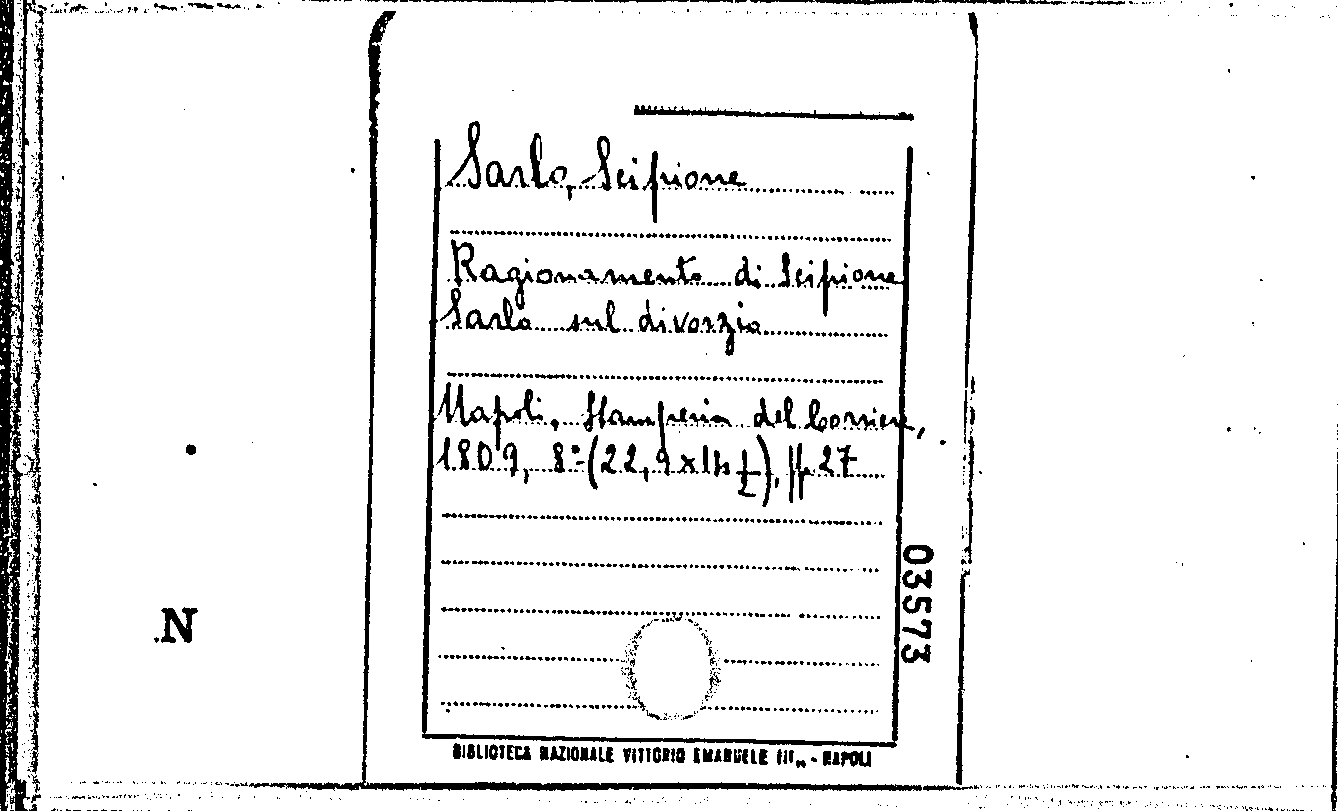 Sarlo, Scipione
Ragionamento di Scipione
Sarlo sul divorzio
Napoli, Stamperia del Corriere,
1809, 8º (22,9x14 1/2), pp 27
03573
N
BIBLIOTECA NAZIONALE VITTORIO EMANUELE III„ - NAPOLI